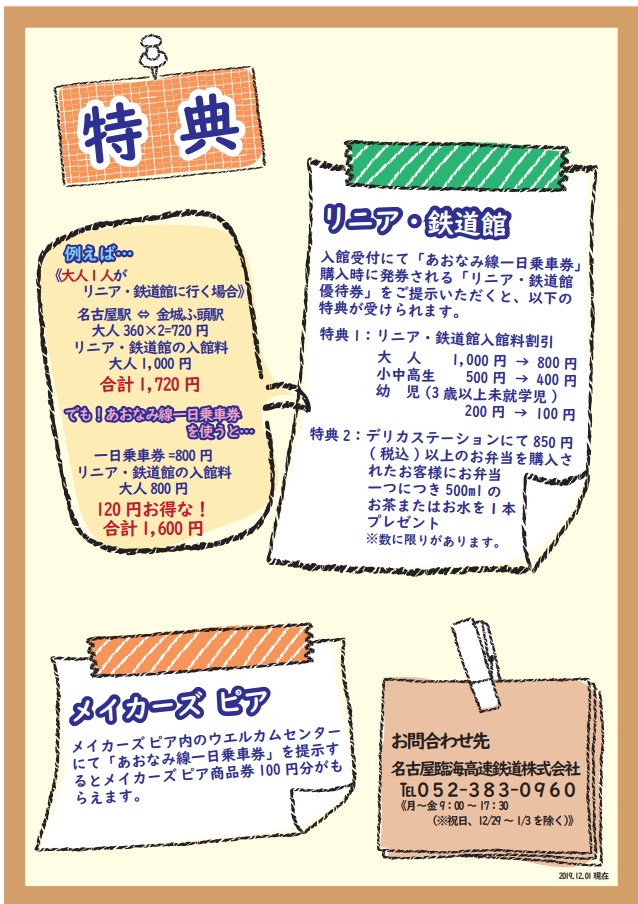 特典
リニア・鉄道館
入館受付にて「あおなみ線一日乗車券」
購入時に発券される「リニア・鉄道館
優待券」をご提示いただくと、以下の
特典が受けられます。
特典1：リニア・鉄道館入館料割引
大　人　1,000円 → 800円
小中高生　500円 → 400円
幼　児（3歳以上未就学児）
200円 → 100円
特典2：デリカステーションにて850円
（税込）以上のお弁当を購入さ
れたお客様にお弁当
一つにつき500mlの
お茶またはお水を1本
プレゼント
※数に限りがあります。
例えば…
《大人1人が
リニア・鉄道館に行く場合》
名古屋駅 ⇔ 金城ふ頭駅
大人360×2=720円
リニア・鉄道館の入館料
大人1,000円
合計1,720円
でも！あおなみ線一日乗車券
を使うと…
一日乗車券=800円
リニア・鉄道館の入館料
大人800円
120円お得な！
合計1,600円
メイカーズ ピア
メイカーズ ピア内のウエルカムセンター
にて「あおなみ線一日乗車券」を提示す
るとメイカーズ ピア商品券100円分がも
らえます。
お問合わせ先
名古屋臨海高速鉄道株式会社
℡052-383-0960
《月～金9：00～17：30
（※祝日、12/29～1/3を除く）》
2019.12.01現在